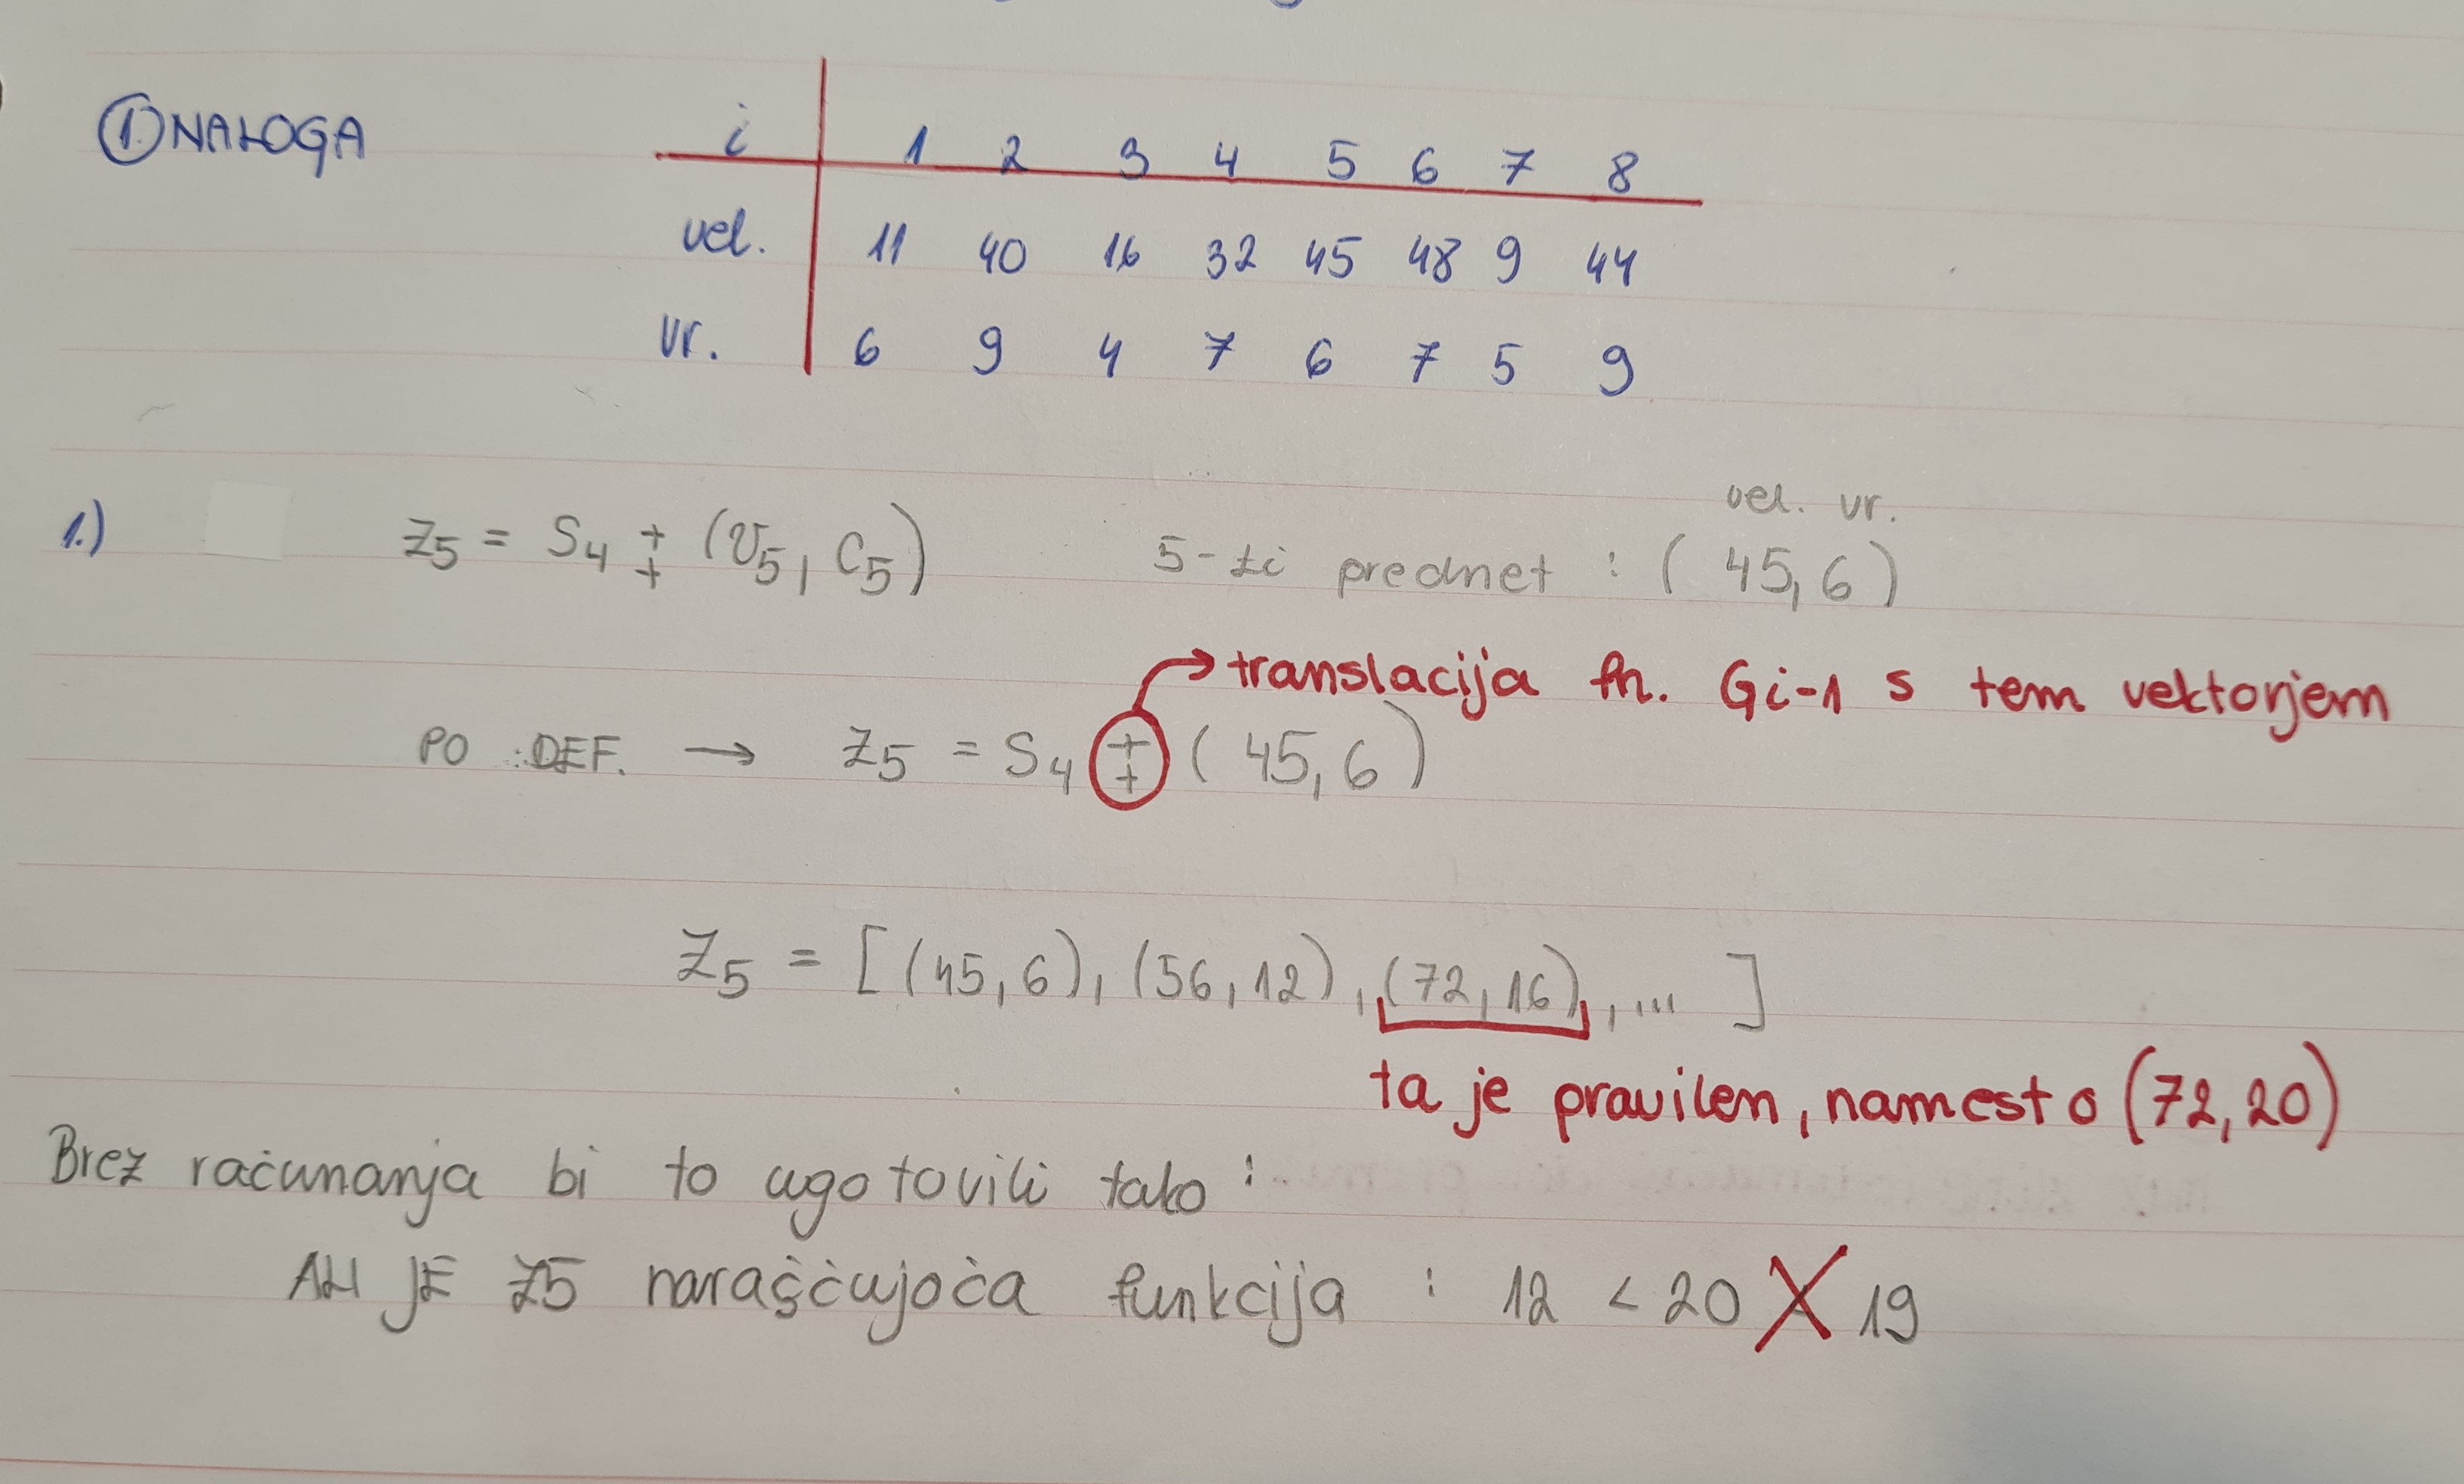 1. NALOGA
i 1 2 3 4 5 6 7 8
vel. 11 40 16 32 45 48 9 44
vr. 6 9 4 7 6 7 5 9
1.) Z5 = S4 ++ (v5, c5) 5-ti predmet : ( 45, 6 )
vel. vr.
translacija fn. Gi-1 s tem vektorjem
PO DEF. → Z5 = S4 ++ ( 45, 6 )
Z5 = [ (45, 6), (56, 12), (72, 16), ... ]
ta je pravilen, namesto (72, 20)
Brez računanja bi to ugotovili tako :
ALI JE Z5 naraščujoča funkcija : 12 < 20 X 19